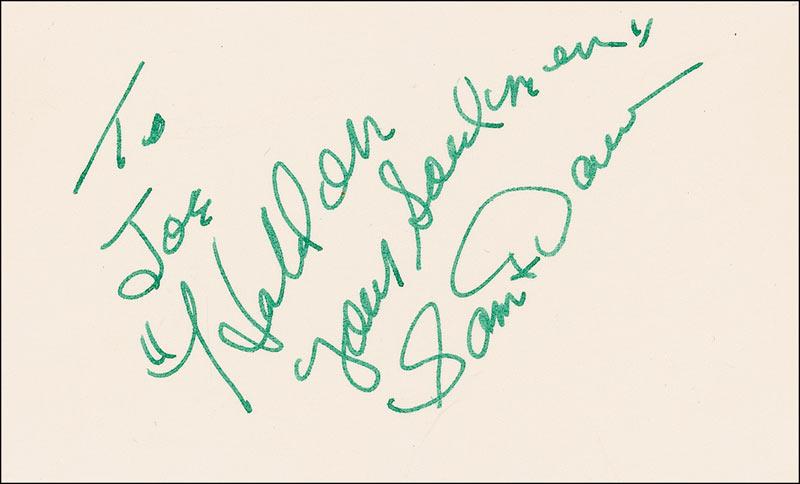 To
Joe
"Hold on
your Soulmen"
Sam + Dave